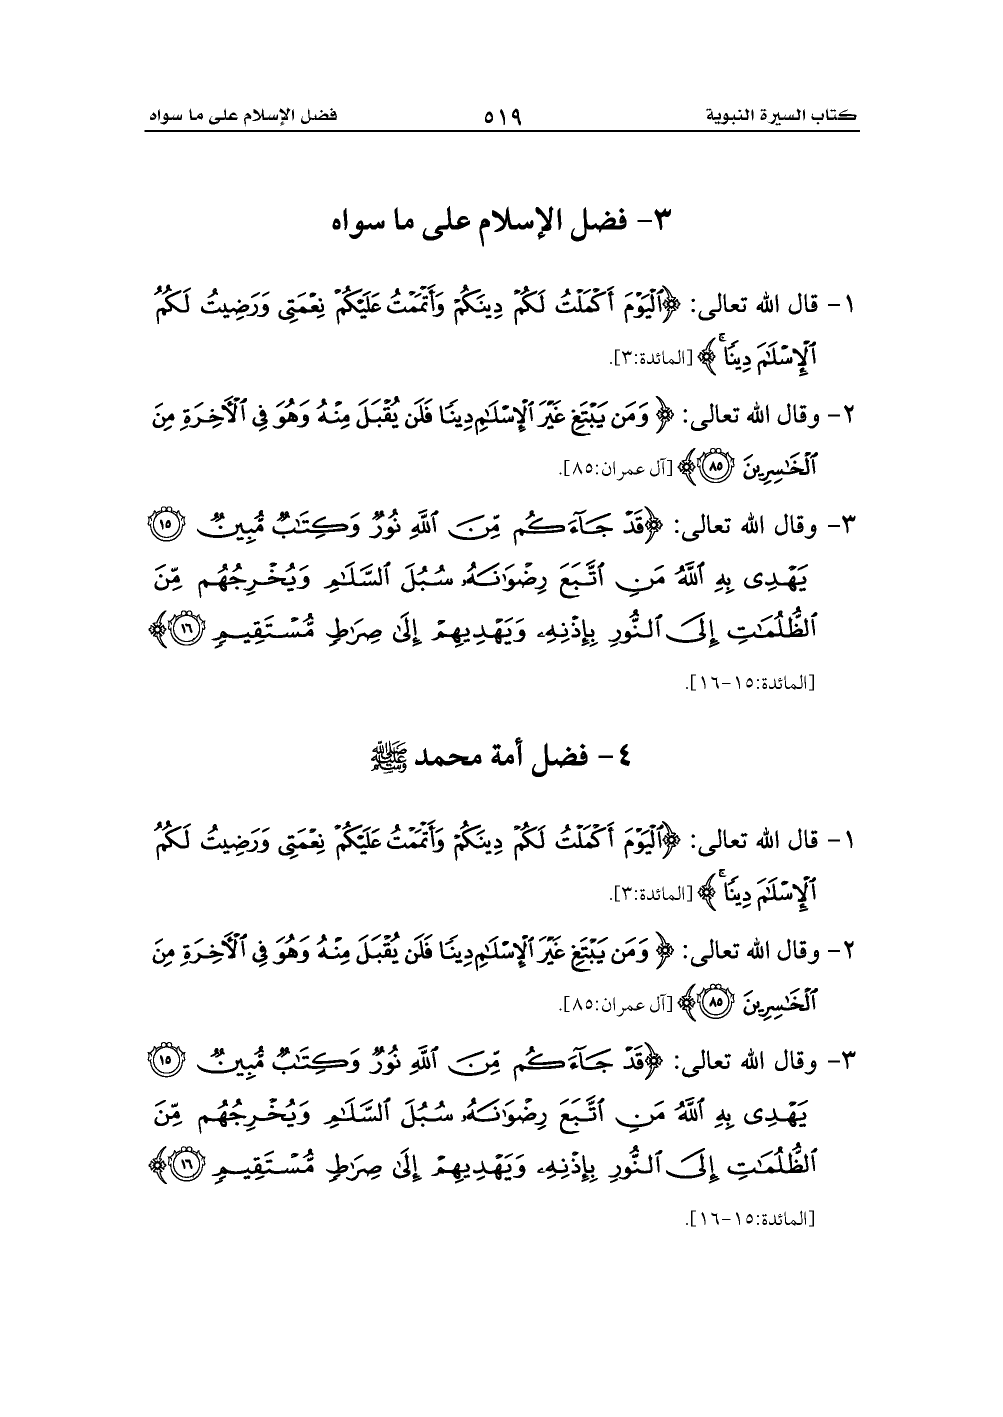 كتاب السيرة النبوية ٥١٩ فضل الإسلام على ما سواه
٣- فضل الإسلام على ما سواه
١- قال الله تعالى: ﴿ٱلۡيَوۡمَ أَكۡمَلۡتُ لَكُمۡ دِينَكُمۡ وَأَتۡمَمۡتُ عَلَيۡكُمۡ نِعۡمَتِي وَرَضِيتُ لَكُمُ
ٱلۡإِسۡلَٰمَ دِينٗاۚ﴾ [المائدة:٣].
٢- وقال الله تعالى: ﴿وَمَن يَبۡتَغِ غَيۡرَ ٱلۡإِسۡلَٰمِ دِينٗا فَلَن يُقۡبَلَ مِنۡهُ وَهُوَ فِي ٱلۡأٓخِرَةِ مِنَ
ٱلۡخَٰسِرِينَ ٨٥﴾ [آل عمران:٨٥].
٣- وقال الله تعالى: ﴿قَدۡ جَآءَكُم مِّنَ ٱللَّهِ نُورٞ وَكِتَٰبٞ مُّبِينٞ ١٥
يَهۡدِي بِهِ ٱللَّهُ مَنِ ٱتَّبَعَ رِضۡوَٰنَهُۥ سُبُلَ ٱلسَّلَٰمِ وَيُخۡرِجُهُم مِّنَ
ٱلظُّلُمَٰتِ إِلَى ٱلنُّورِ بِإِذۡنِهِۦ وَيَهۡدِيهِمۡ إِلَىٰ صِرَٰطٖ مُّسۡتَقِيمٖ ١٦﴾
[المائدة:١٥-١٦].
٤- فضل أمة محمد ﷺ
١- قال الله تعالى: ﴿ٱلۡيَوۡمَ أَكۡمَلۡتُ لَكُمۡ دِينَكُمۡ وَأَتۡمَمۡتُ عَلَيۡكُمۡ نِعۡمَتِي وَرَضِيتُ لَكُمُ
ٱلۡإِسۡلَٰمَ دِينٗاۚ﴾ [المائدة:٣].
٢- وقال الله تعالى: ﴿وَمَن يَبۡتَغِ غَيۡرَ ٱلۡإِسۡلَٰمِ دِينٗا فَلَن يُقۡبَلَ مِنۡهُ وَهُوَ فِي ٱلۡأٓخِرَةِ مِنَ
ٱلۡخَٰسِرِينَ ٨٥﴾ [آل عمران:٨٥].
٣- وقال الله تعالى: ﴿قَدۡ جَآءَكُم مِّنَ ٱللَّهِ نُورٞ وَكِتَٰبٞ مُّبِينٞ ١٥
يَهۡدِي بِهِ ٱللَّهُ مَنِ ٱتَّبَعَ رِضۡوَٰنَهُۥ سُبُلَ ٱلسَّلَٰمِ وَيُخۡرِجُهُم مِّنَ
ٱلظُّلُمَٰتِ إِلَى ٱلنُّورِ بِإِذۡنِهِۦ وَيَهۡدِيهِمۡ إِلَىٰ صِرَٰطٖ مُّسۡتَقِيمٖ ١٦﴾
[المائدة:١٥-١٦].